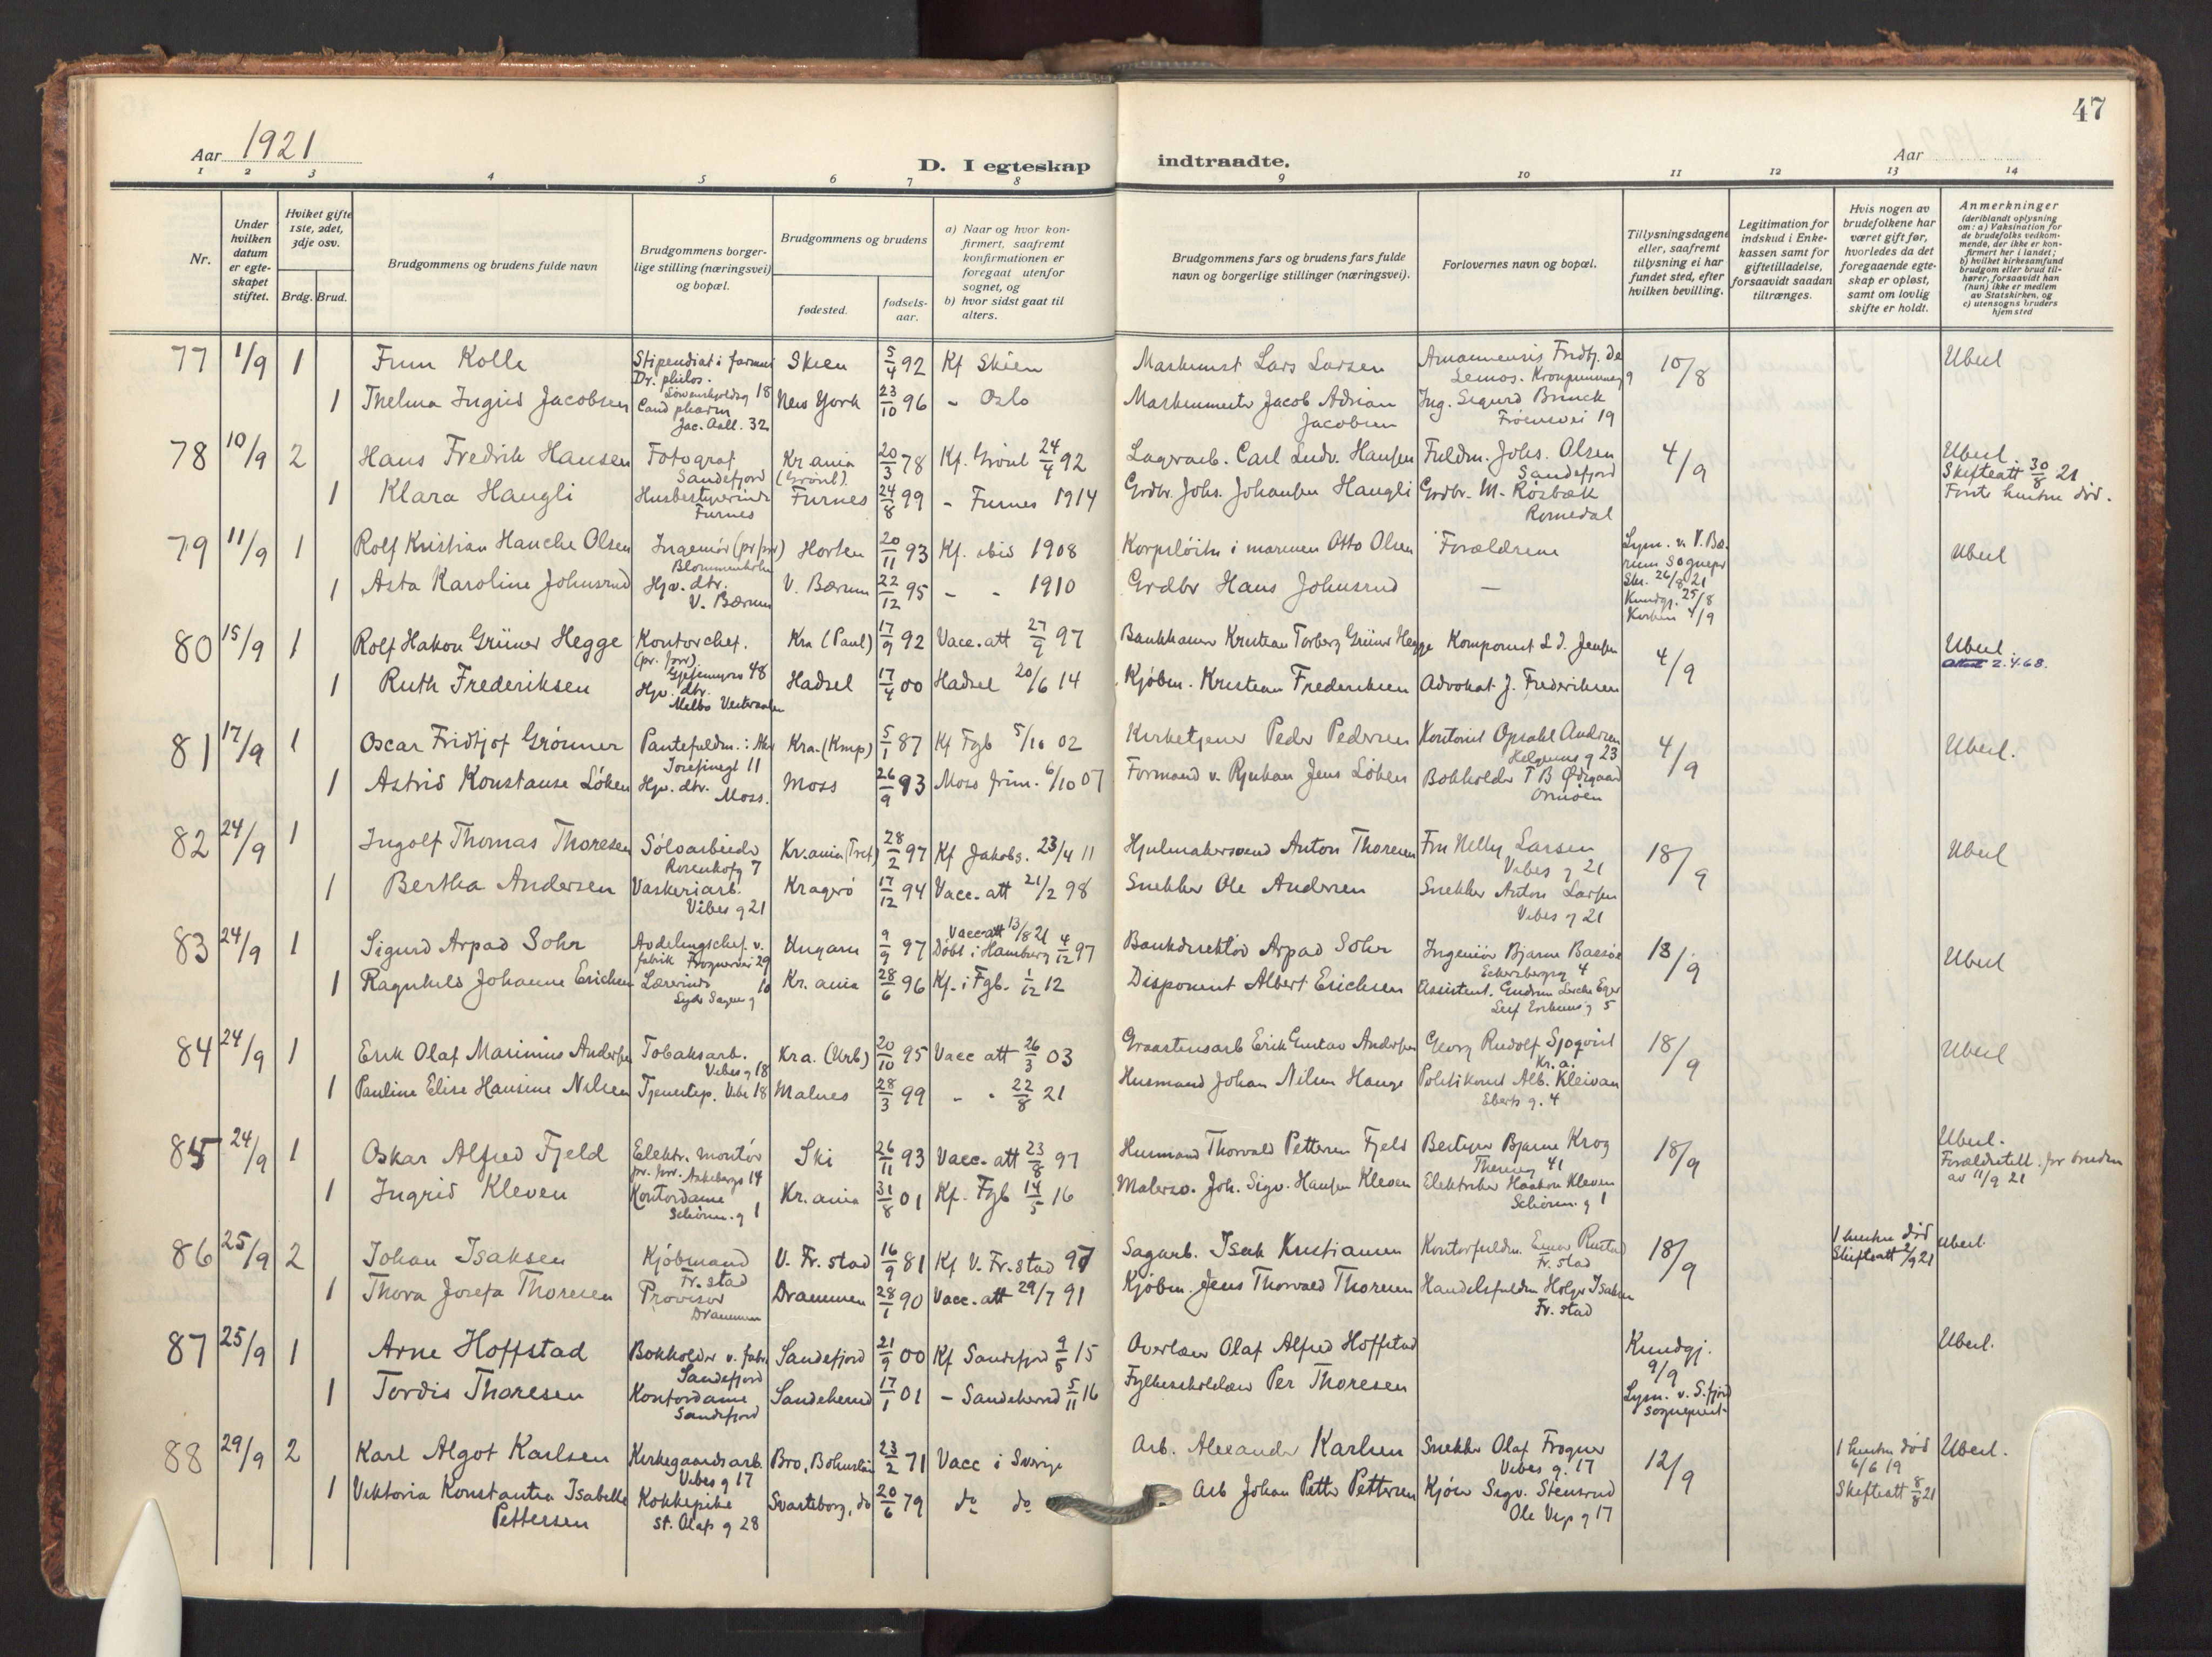 47
Aar 1921
D. I egteskap indtraadte.
Aar
1 2 3 4 5 6 7 8 9 10 11 12 13 14
Nr.
Under hvilken datum er egteskapet stiftet.
Hviket gifte 1ste, 2det, 3dje osv.
Brdg. Brud.
Brudgommens og brudens fulde navn
Brudgommens borgerlige stilling (næringsvei) og bopæl.
Brudgommens og brudens
fødested.
fødselsaar.
a) Naar og hvor konfirmert, saafremt konfirmationen er foregaat utenfor sognet, og
b) hvor sidst gaat til alters.
Brudgommens fars og brudens fars fulde navn og borgerlige stillinger (næringsvei).
Forlovernes navn og bopæl.
Tillysningsdagene eller, saafremt tillysning ei har fundet sted, efter hvilken bevilling.
Legitimation for indskud i Enkekassen samt for giftetilladelse, forsaavidt saadan tiltrænges.
Hvis nogen av brudefolkene har været gift før, hvorledes da det foregaaende egteskap er opløst, samt om lovlig skifte er holdt.
Anmerkninger
(deriblandt oplysning om: a) Vaksination for de brudefolks vedkommende, der ikke er konfirmert her i landet; b) hvilket kirkesamfund brudgom eller brud tilhører, forsaavidt han (hun) ikke er medlem av Statskirken, og c) utensogns bruders hjemsted
77 1/9 1 Finn Kolle Stipendiat i farmaci Dr. philos. Løvenskjoldsg 18 Skien 5/4 92 Kf Skien Maskinist Lars Larsen Amanuensis Fridtj. de Lemos. 10/8 Ubesl
1 Thelma Ingrid Jacobsen Cand pharm Jac. Aall. 32 New York 23/10 96 - Oslo Maskinmester Jacob Adrian Jacobsen Ing. Sigurd Brinck Frøensvei 19
78 10/9 2 Hans Fredrik Hansen Fotograf Sandefjord Kr.ania (Grønl.) 20/3 78 Kf. Grønl 24/4 92 Lagerarb. Carl Ludv. Hansen Fuldm. Johs. Olsen Sandefjord 4/9 Ubesl. Skifteatt 30/8 21 Første hustru død.
1 Klara Haugli Husbestyrerinde Furnes Furnes 24/8 99 - Furnes 1914 Grdbr. Johs. Johansen Haugli Grdbr. M. Røsbæk Romedal
79 11/9 1 Rolf Kristian Hauche Olsen Ingeniør (pr prv) Blommenholm Horten 20/11 93 Kf. ibid 1908 Korpsløitn i marinen Otto Olsen Forældrene Lysn. v. V. Bærum Sognepr Skr. 26/8 21 Kundgj. 25/8 Kirken 4/9 Ubesl
1 Asta Karoline Johnsrud Hjv. dtr. V. Bærum V. Bærum 22/12 95 - - 1910 Grdbr Hans Johnsrud -
80 15/9 1 Rolf Hakon Grüner Hegge Kontorchef. (pr. prv). Gjetemyrsv 48 Kra (Paul) 17/9 92 Vacc. att 27/9 97 Bankkasserer Kristian Torberg Grüner Hegge Komponist L I. Jensen 4/9 Ubesl. Attest 2.4.68.
1 Ruth Frederiksen Hjv. dtr. Melbo Vesteraalen Hadsel 17/4 00 Hadsel 20/6 14 Kjøbm. Kristian Frederiksen Advokat J. Frederiksen
81 17/9 1 Oscar Fridtjof Grönner Pantefuldm. i Aker Josefinegt 11 Kra. (Kmp) 5/1 87 Kf Fgb 5/10 02 Kirketjener Peder Pedersen Kontorist Opsahl Andersen Helgesens g 23 4/9 Ubesl.
1 Astrid Konstanse Löken Hjv. dtr. Moss. Moss 26/9 93 Moss frim. 6/10 07 Formand v. Rjukan Jens Löken Bokholder T B Ødegaard Ormöen
82 24/9 1 Ingolf Thomas Thoresen Sölvarbeider Rosenhofg 7 Kr.ania (Tref) 28/2 97 Kf Jakobs. 23/4 11 Hjulmakersvend Anton Thoresen Fru Nelly Larsen Vibes g 21 18/9 Ubesl
1 Bertha Andersen Vaskeriarb. Vibes g 21 Kragerø 17/12 94 Vacc. att 21/2 98 Snekker Ole Andersen Snekker Anton Larsen Vibes g 21
83 24/9 1 Sigurd Arpad Sohr Avdelingschef. v. fabrik Frognervei 29 Ungarn 9/9 97 Vacc att 13/8 21 Döbt i Hamburg 4/12 97 Bankdirektör Arpad Sohr Ingeniør Bjarne Bassøe Eckersbergsg 4 18/9 Ubesl
1 Ragnhild Johanne Erichsen Lærerinde Lyder Sagens g 10 Kr. ania 28/6 96 Kf. i Fgb. 1/12 12 Disponent Albert Erichsen Assistent. Gudrun Lerche Eger Leif Eriksens g 5
84 24/9 1 Erik Olaf Marinius Andersen Tobaksarb. Vibes g 18 Kra. (Urb) 20/10 95 Vacc att 26/3 03 Graastensarb Erik Gustav Andersen Georg Rudolf Sjøqvist Kr.a. 18/9 Ubesl
1 Pauline Elise Hansine Nilsen Tjenestep. Vibe 18 Malnes 28/3 99 - - 22/8 21 Husmand Johan Nilsen Hauge Politikonst Alb. Kleivan Eberts g. 4
85 24/9 1 Oskar Alfred Fjeld Elektr. montör pr. prv. Askebergs 14 Ski 26/11 93 Vacc. att 23/8 97 Husmand Thorvald Petersen Fjeld Bestyrer Bjarne Krog Theresesg 41 18/9 Ubesl. Forældretill. for bruden av 11/9 21
1 Ingrid Kleven Kontordame Schönn. g 1 Kr. ania 31/8 01 Kf. Fgb 14/5 16 Malersv. Joh. Sigv. Hansen Kleven Elektriker Haakon Kleven Schönn. g 1
86 25/9 2 Johan Isaksen Kjöbmand Fr. stad V. Fr. stad 16/9 81 Kf V. Fr. stad 97 Sagarb. Isak Kristiansen Kontorfuldm. Einar Rustad Fr. stad 18/9 1 hustru död Skifteatt 2/9 21 Ubesl.
1 Thora Josefa Thoresen Provisor Drammen Drammen 28/1 90 Vacc. att 29/7 91 Kjöbm. Jens Thorvald Thoresen Handelsfuldm Holger Isaksen Fr. stad
87 25/9 1 Arne Hoffstad Bokholder v. fabr. Sandefjord Sandefjord 21/9 00 Kf Sandefjord 9/5 15 Overlærer Olaf Alfred Hoffstad Kundgj. 9/9 Lysn. v. S.fjord sogneprest Ubesl.
1 Tordis Thoresen Kontordame Sandefjord Sandeherred 17/1 01 - Sandeherred 5/11 16 Fylkesskolelærer Per Thoresen
88 29/9 2 Karl Algot Karlsen Kirkegaardsarb. Vibes g 17 Bro, Bohuslän 23/2 71 Vacc i Sverige Arb. Alexander Karlsen Snekker Olaf Frogner Vibes g. 17 12/9 1 hustru död 6/6 19 Skifteatt 8/8 21 Ubesl.
1 Viktoria Konstantia Isabella Pettersen Kokkepike St. Olafs g 28 Svarteborg, do 20/6 79 do do Arb Johan Petter Pettersen Kjörer Sigv. Stensrud Ole Vigs g 17